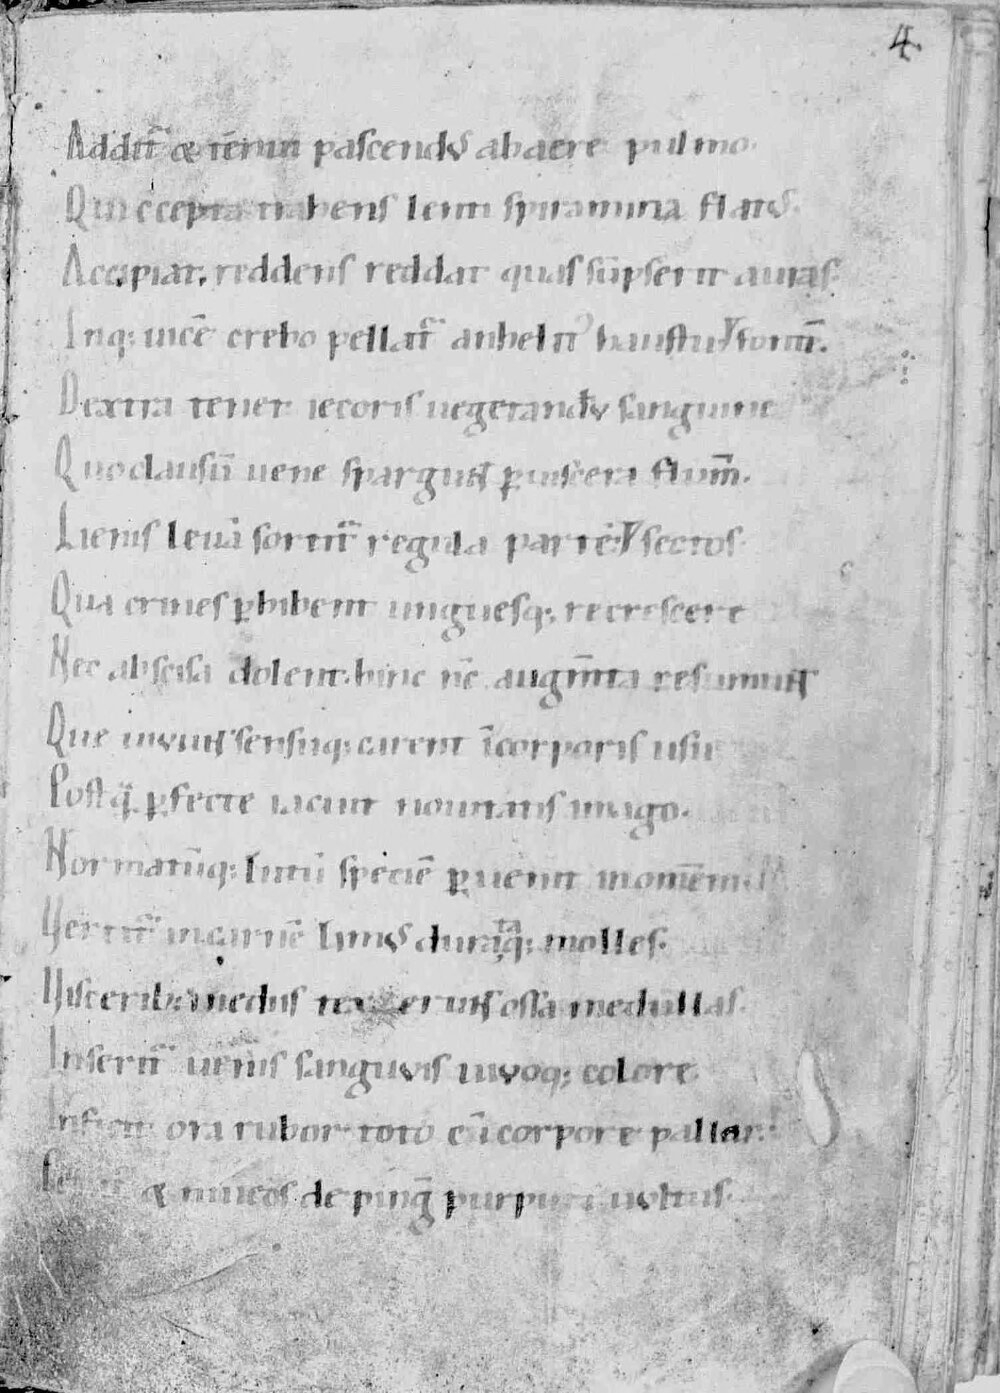 4
Addit̃ & teñui pascendus ab aere pulmo.
Qui accepta trahens leni spiramina flatus.
Accipiat, reddens reddat quas sūpserit auras.
Inq; uicē crebo pellat̃ anhelit' haustus foruī.
Dextra tenet iecoris uegetandū sanguine
Quo clausū uene spargunt p uiscera flum̄.
Lienis leuā sortit̃ regula partē sectos
Qua crines phibent unguesq; recrescere
Nec abscisa dolent. hinc nē augm̄ta resumunt
Que uiuunt sensuq; carent ī corporis usu
Postq̃ pfecte iacuit nouitatis imago.
Normatūq; lutū speciē puenit
Uertit̃ in carnē limus durataq; molles.
Uiscerib; mediis traxerunt ossa medullas.
Inserit̃ uenis sanguis uiuoq; colore
Inficit ora rubor toto cū corpore pallor.
& niueos de pingū purpura uultus.